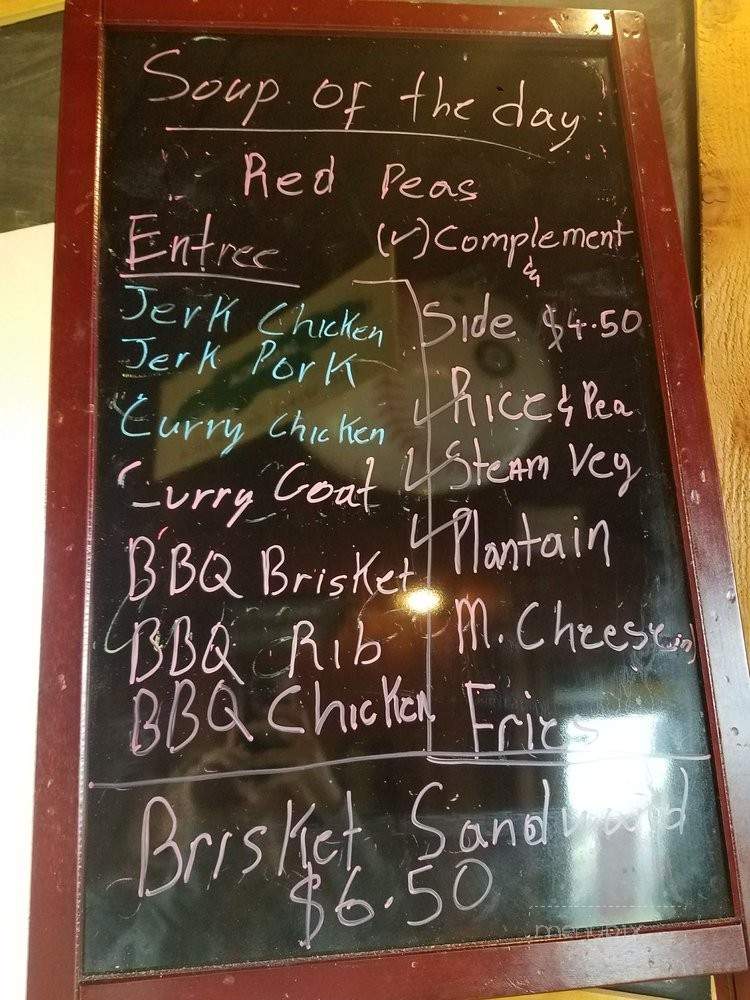 Soup of the day
Red Peas
Entree
Jerk Chicken
Jerk Pork
Curry Chicken
Curry Goat
BBQ Brisket
BBQ Rib
BBQ Chicken
(✓) Complement
&
Side $4.50
✓ Rice & Pea
✓ Steam Veg
✓ Plantain
M. Cheese
Fries
Brisket
$6.50
menupix